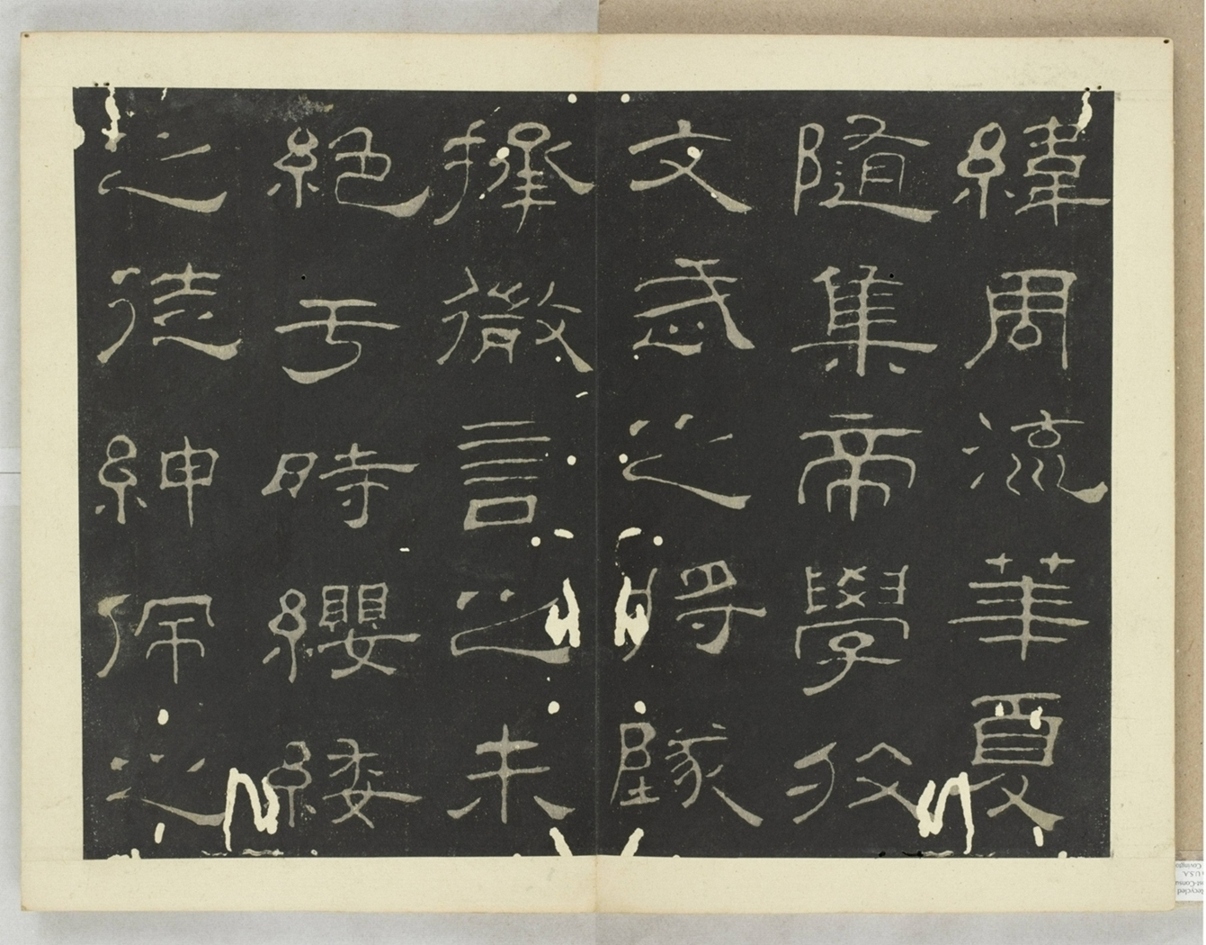 緯周流華夏
隨集帝學收
文武之將墜
拯微言之未
絕于時纓緌
之徒紳佩之